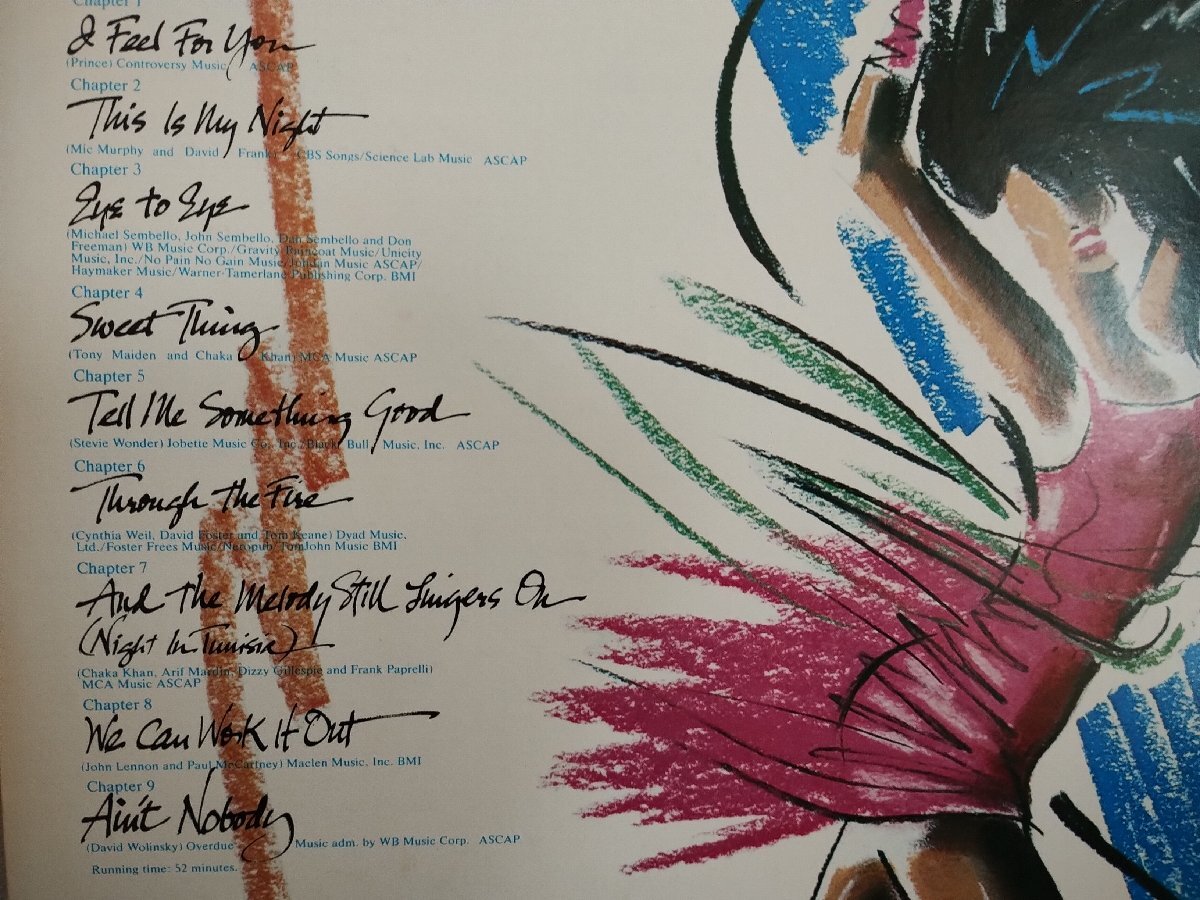 Chapter 1
I Feel For You
(Prince) Controversy Music ASCAP
Chapter 2
This Is My Night
(Mic Murphy and David Frank) CBS Songs/Science Lab Music ASCAP
Chapter 3
Eye to Eye
(Michael Sembello, John Sembello, Dan Sembello and Don
Freeman) WB Music Corp./Gravity Raincoat Music/Unicity
Music, Inc./No Pain No Gain Music/Jordan Music ASCAP/
Haymaker Music/Warner-Tamerlane Publishing Corp. BMI
Chapter 4
Sweet Thing
(Tony Maiden and Chaka Khan) MCA Music ASCAP
Chapter 5
Tell Me Something Good
(Stevie Wonder) Jobette Music Co. Inc./Black Bull Music, Inc. ASCAP
Chapter 6
Through the Fire
(Cynthia Weil, David Foster and Tom Keane) Dyad Music,
Ltd./Foster Frees Music/Neropub/TomJohn Music BMI
Chapter 7
And The Melody Still Lingers On
(Night In Tunisia)
(Chaka Khan, Arif Mardin, Dizzy Gillespie and Frank Paprelli)
MCA Music ASCAP
Chapter 8
We Can Work It Out
(John Lennon and Paul McCartney) Maclen Music, Inc. BMI
Chapter 9
Ain't Nobody
(David Wolinsky) Overdue Music adm. by WB Music Corp. ASCAP
Running time: 52 minutes.